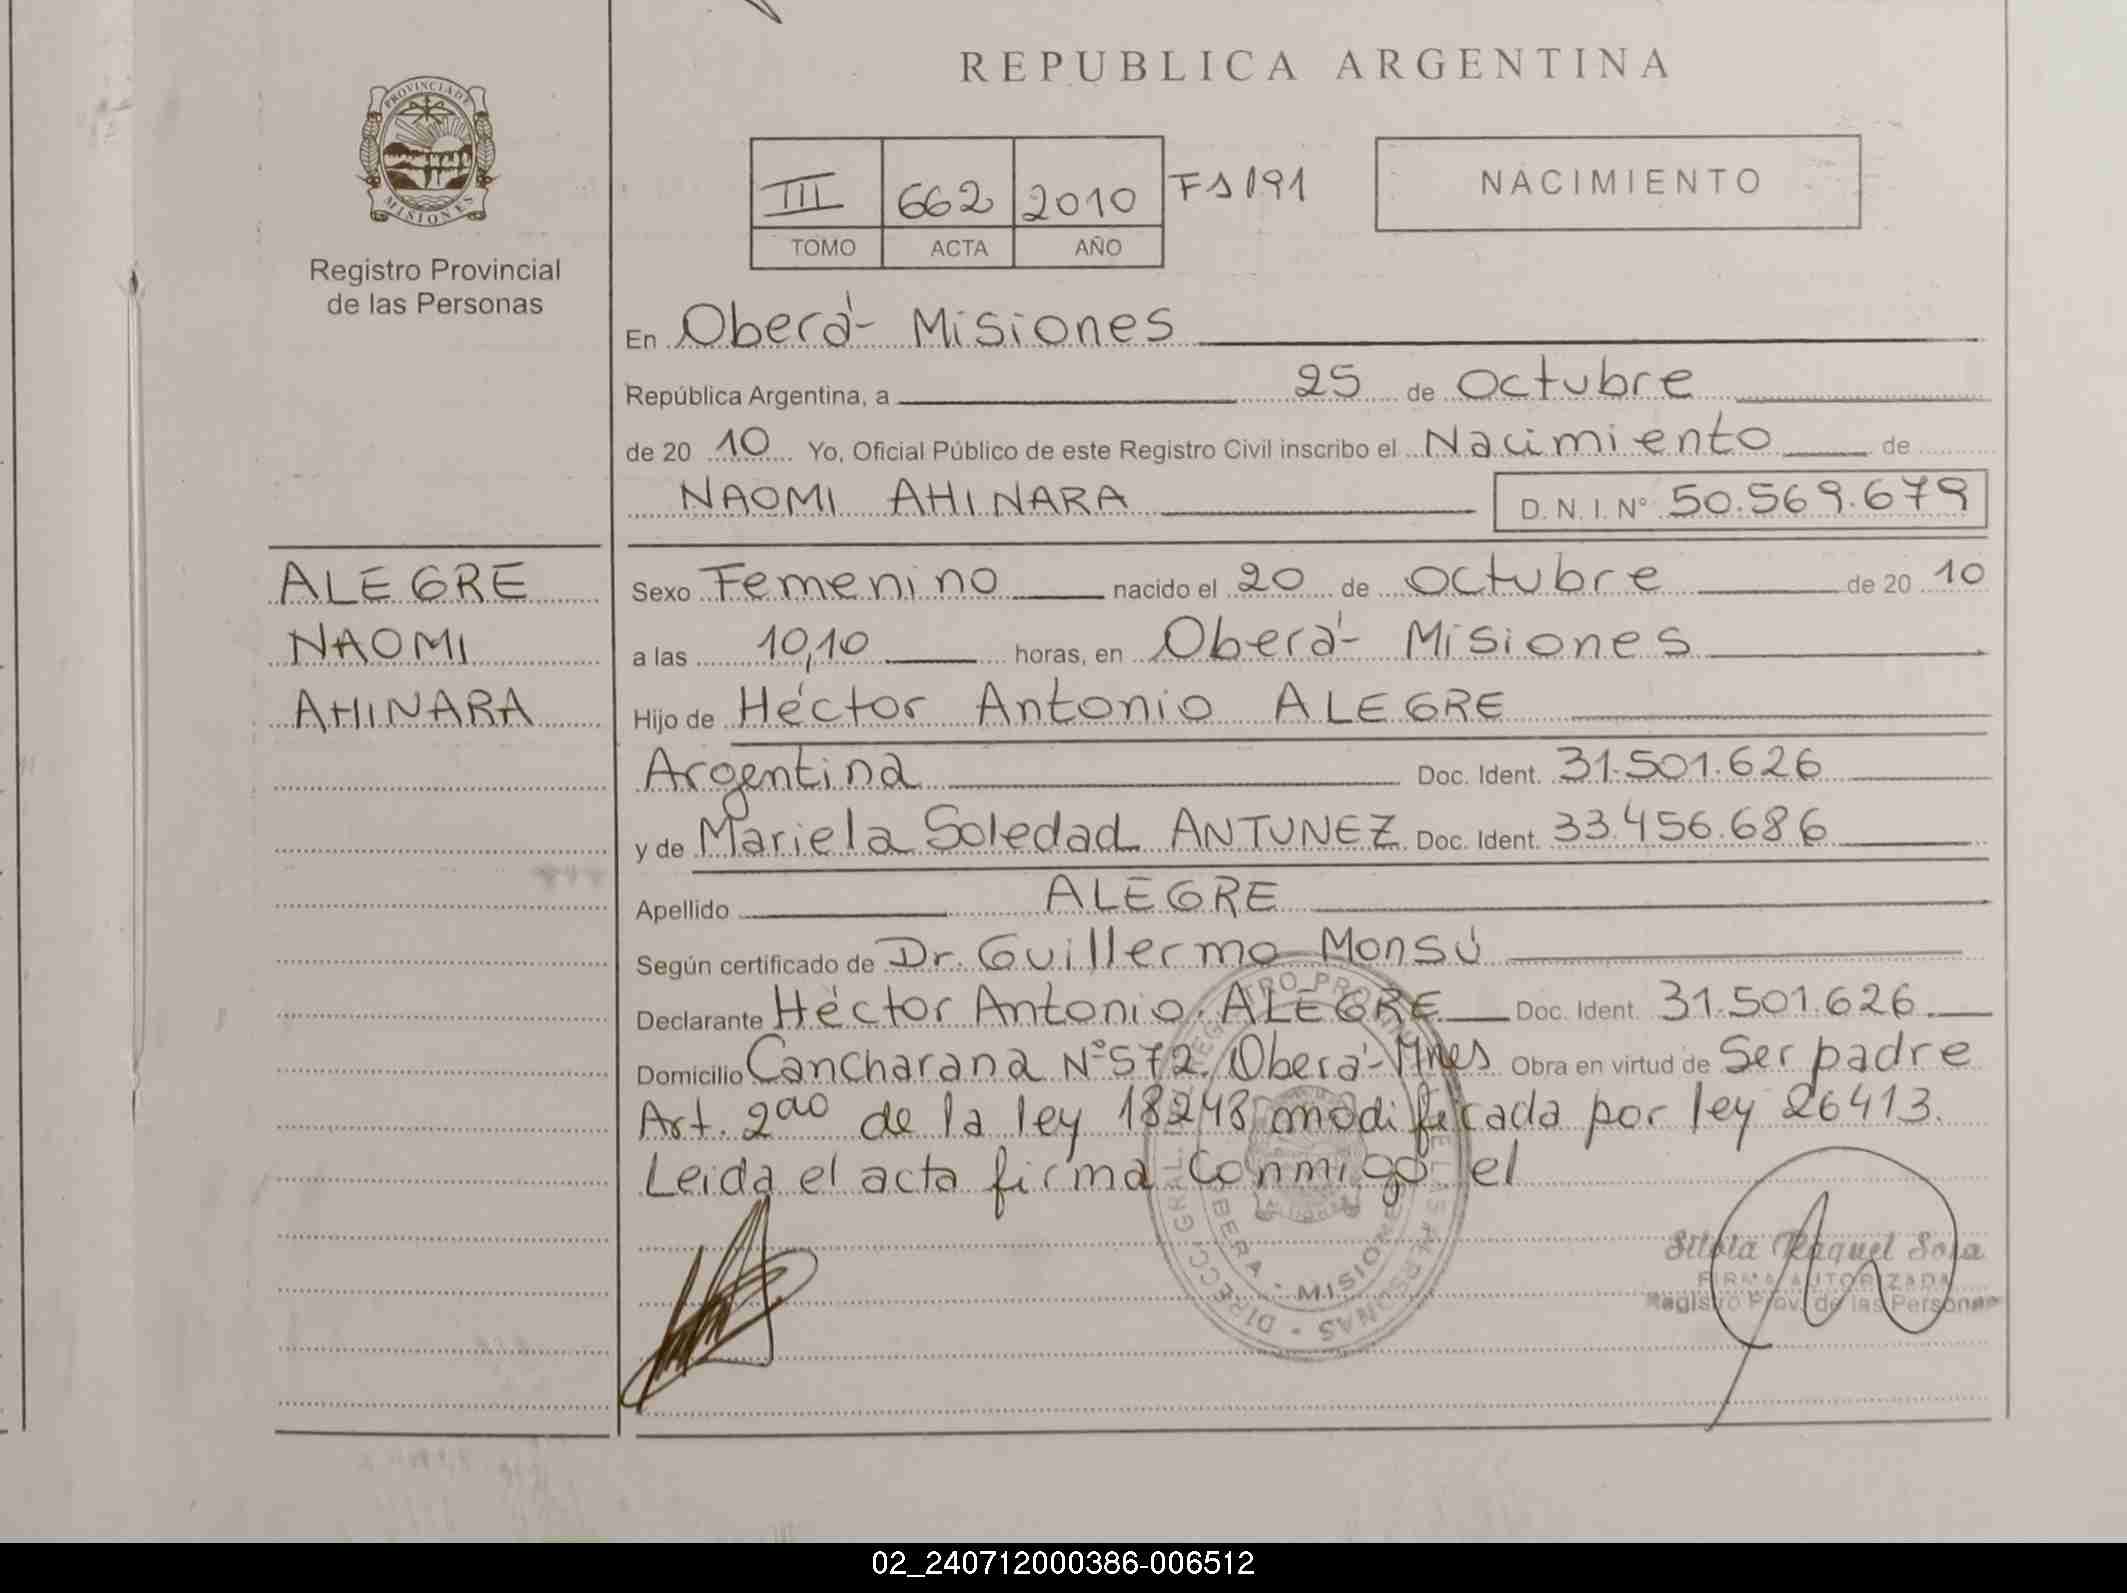 REPUBLICA ARGENTINA
PROVINCIA DE
MISIONES
Registro Provincial
de las Personas
III 662 2010 FS 191
TOMO ACTA AÑO
NACIMIENTO
En Oberá - Misiones
República Argentina, a 25 de Octubre
de 20 10 Yo, Oficial Público de este Registro Civil inscribo el Nacimiento de
NAOMI AHINARA D.N.I. Nº 50.569.679
ALEGRE
NAOMI
AHINARA
Sexo Femenino nacido el 20 de Octubre de 20 10
a las 10,10 horas, en Oberá - Misiones
Hijo de Héctor Antonio ALEGRE
Argentina Doc. Ident. 31.501.626
y de Mariela Soledad ANTUNEZ Doc. Ident. 33.456.686
Apellido ALEGRE
Según certificado de Dr. Guillermo Monsú
Declarante Héctor Antonio ALEGRE Doc. Ident. 31.501.626
Domicilio Cancharana Nº 572. Oberá - Mnes Obra en virtud de Ser padre
Art. 2do de la ley 18248 modificada por ley 26413.
Leida el acta firma conmigo el
MISIONES
Raquel Sosa
FIRMA AUTORIZADA
Registro Prov. de las Personas
02_240712000386-006512